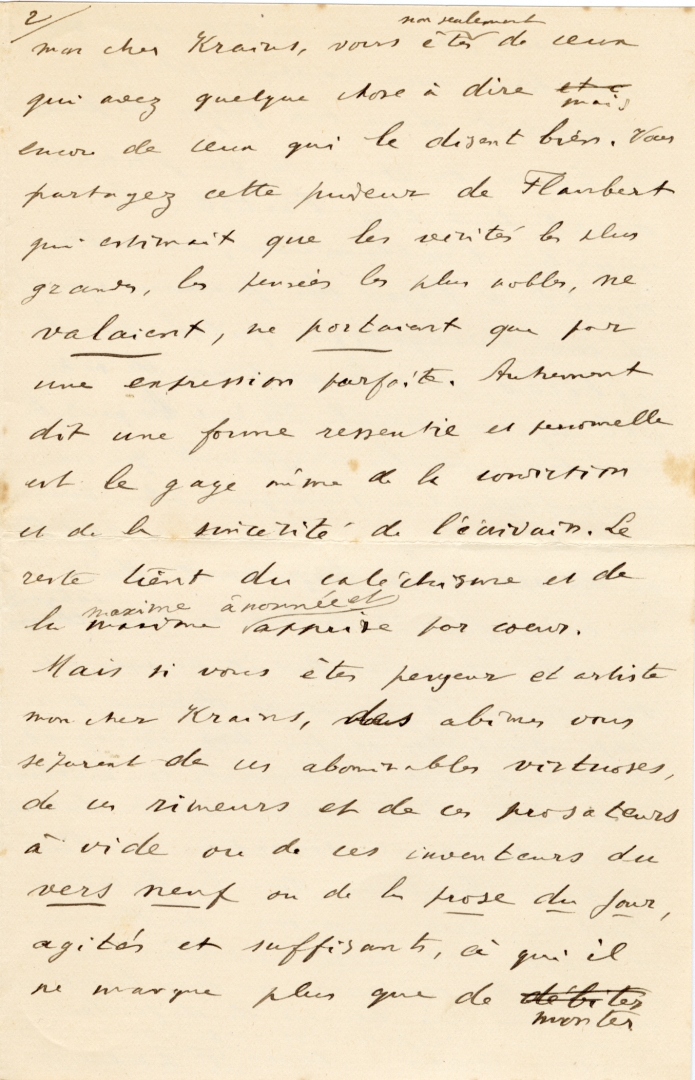 2/
non seulement
mon cher Krains, vous êtes de ceux
qui avez quelque chose à dire et c
mais
encore de ceux qui le disent bien. Vous
partagez cette pudeur de Flaubert
qui estimait que les vérités les plus
grandes, les pensées les plus nobles, ne
valaient, ne portaient que par
une expression parfaite. Autrement
dit une forme ressentie et personnelle
est le gage même de la conviction
et de la sincérité de l'écrivain. Le
reste tient du catéchisme et de
maxime ânonnée et
la maxime apprise par coeur.
Mais si vous êtes penseur et artiste
mon cher Krains, des abîmes vous
séparent de ces abominables virtuoses,
de ces rimeurs et de ces prosateurs
à vide ou de ces inventeurs du
vers neuf ou de la prose du jour,
agités et suffisants, à qui il
ne manque plus que de débiter
monter